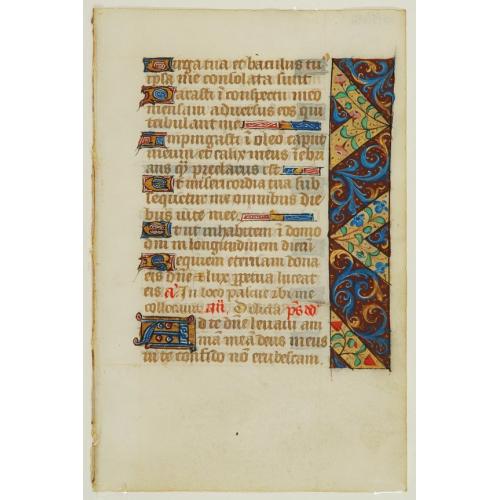 Virga tua et baculus tuus
ipsa me consolata sunt
Parasti i conspectu meo
mensam adversus eos qui
tribulant me
Impinguasti i oleo caput
meum et calix meus iebri
ans qm preclarus est
Et misericordia tua sub
sequetur me omnibus die
bus vite mee
Et ut inhabitem i domo
dni in longitudinem dierum
Requiem eternam dona
eis dne & lux perpetua luceat
eis a. In loco pascue ibi me
collocavit an. Delicta ps dd
Ad te dne levavi ani
mam meam deus meus
in te confido non erubescam.